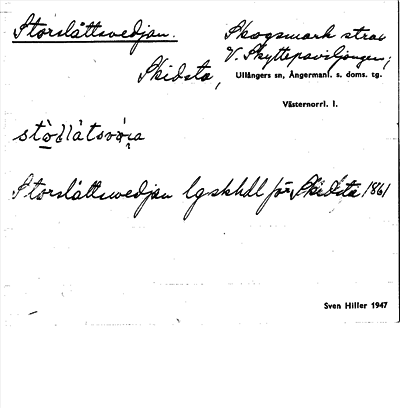 Storslåttsvedjan.
Skogsmark strax
V. Skyttepaviljongen,
Skidsta,
Ullångers sn, Ångermanl. s. doms. tg.
Västernorrl. l.
Storslåttswedjan lgskhdl för Skidsta 1861
Sven Hiller 1947